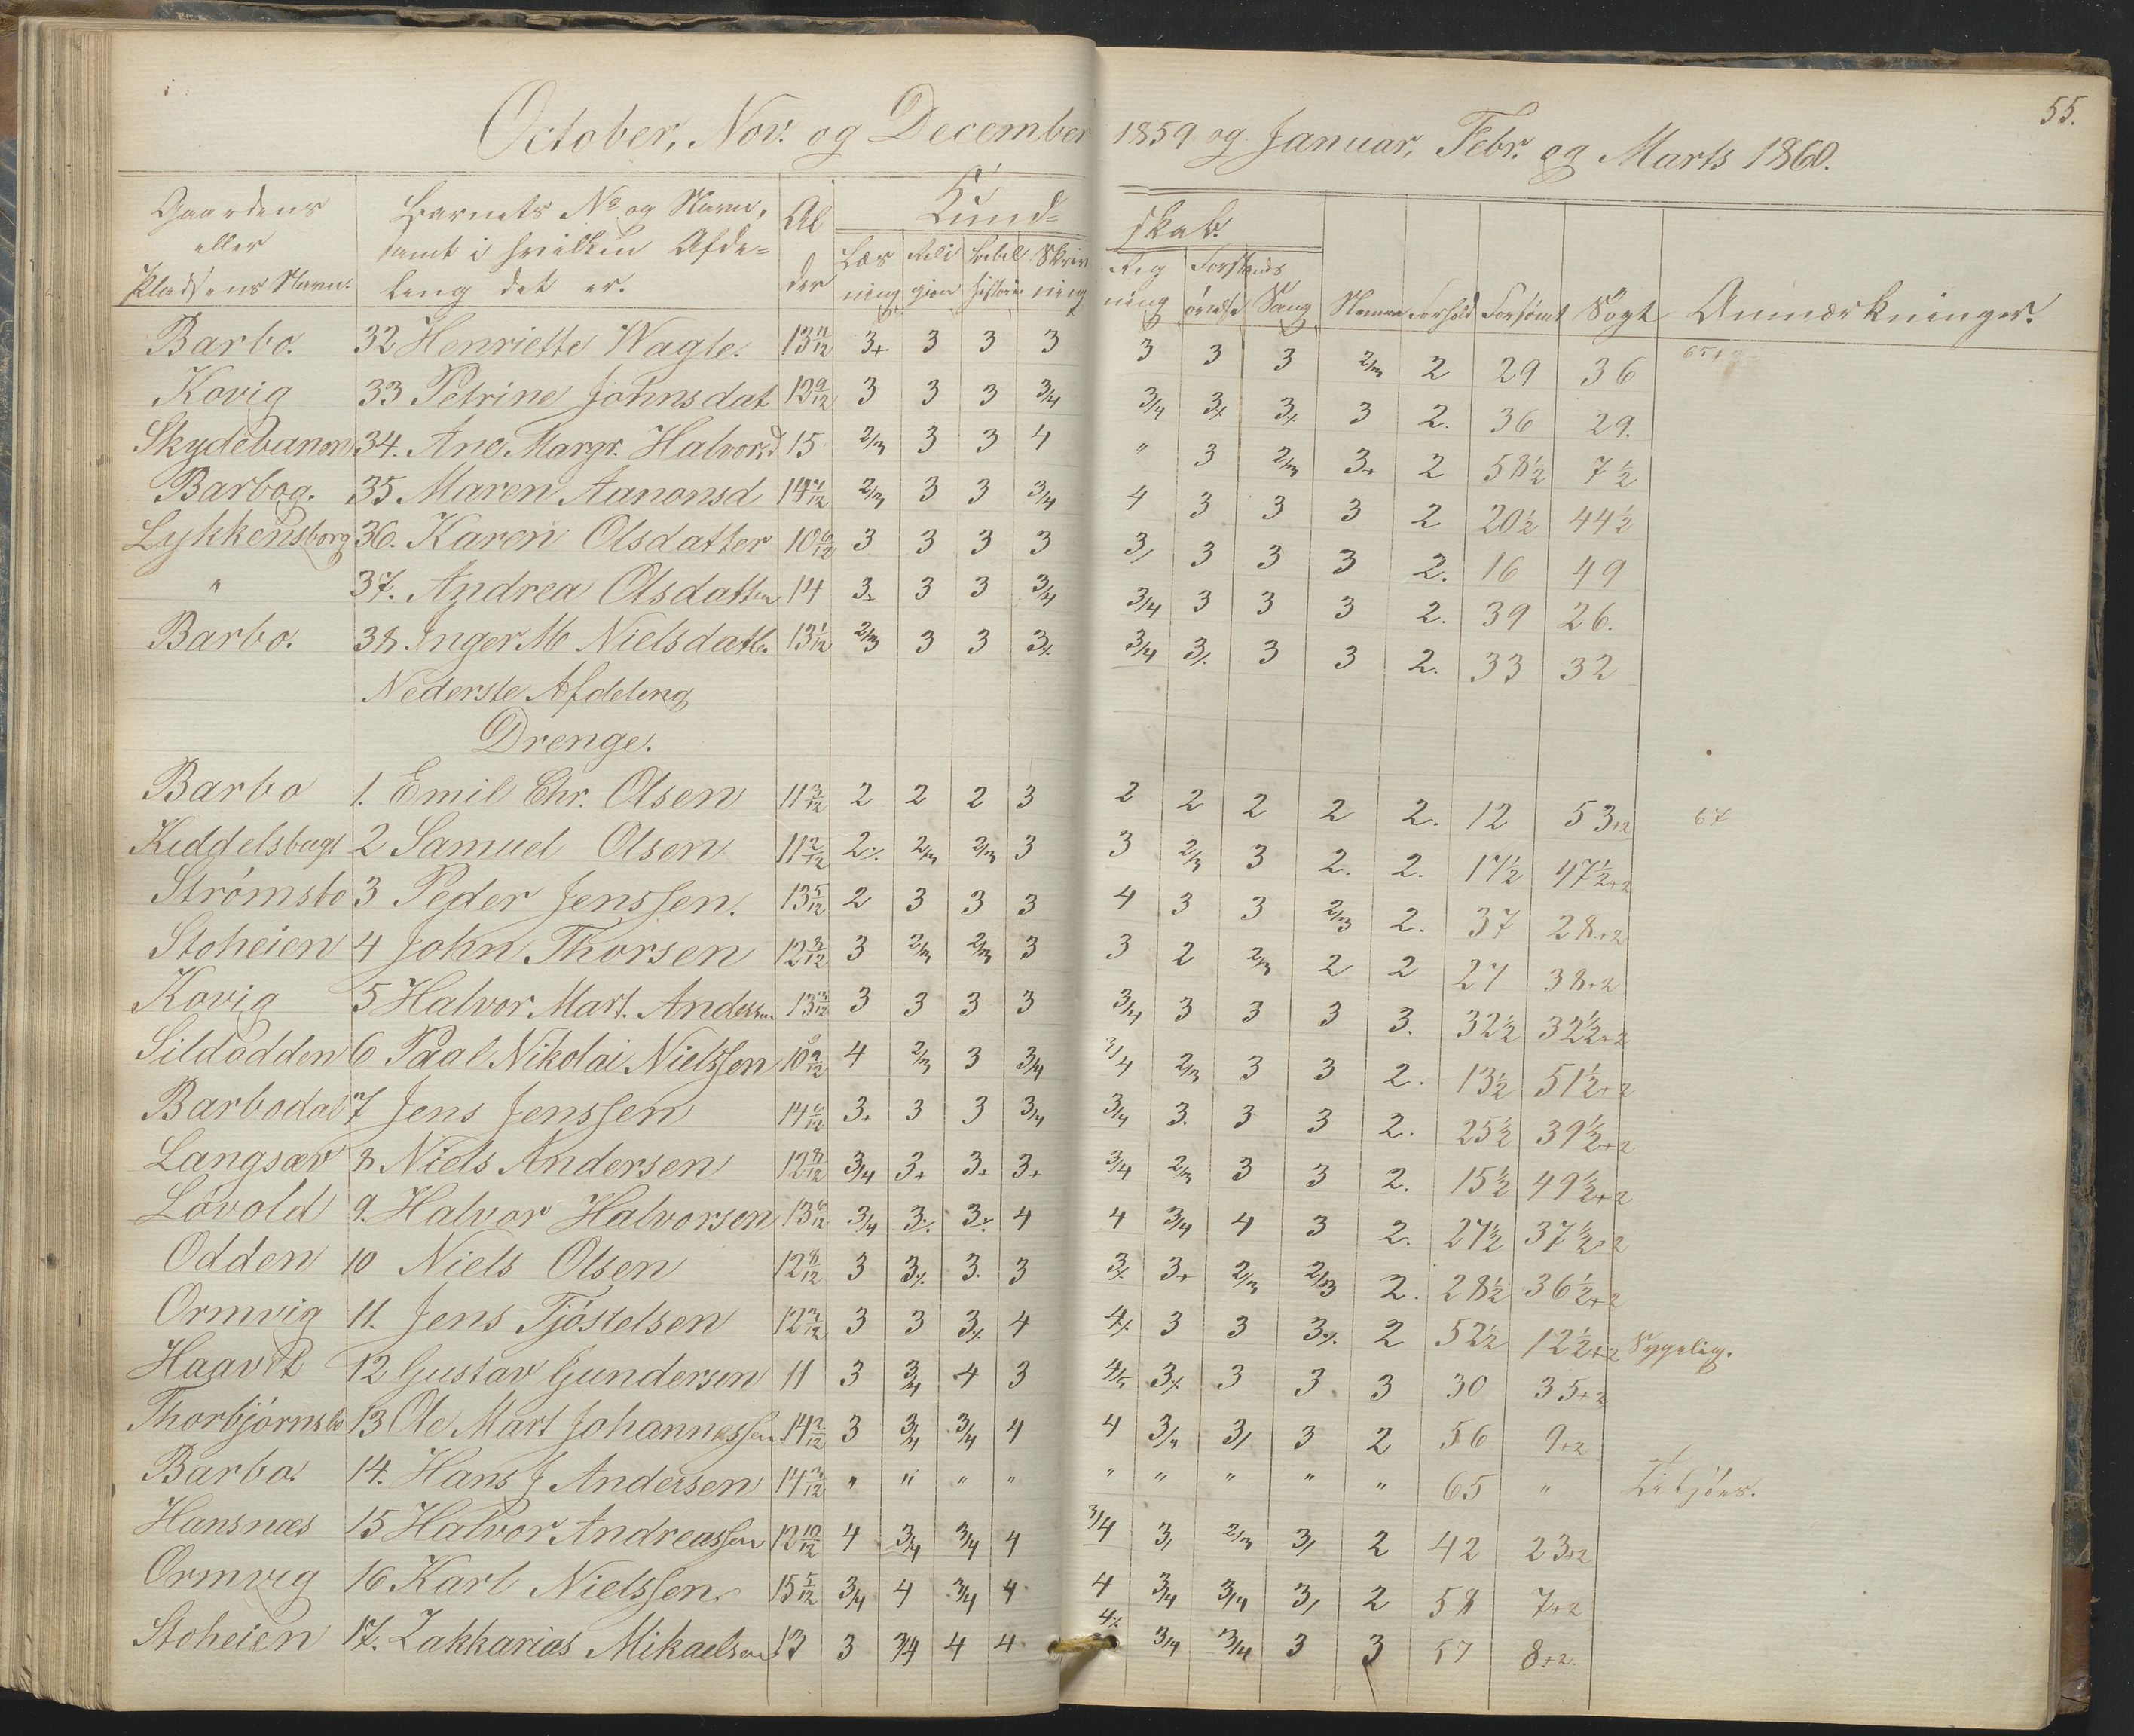 55.
October, Nov. og December 1859 og Januar, Febr. og Marts 1860.
Gaardens eller Pladsens Navn. Barnets No og Navn, samt i hvilken Afdeling det er. Alder Kundskab. Nemme Forhold Forsømt Søgt Anmærkninger.
Læsning Religion Bibelhistorie Skrivning Regning Forstandsøvelse Sang
Barbo. 32 Henriette Wagle. 13 11/12 3+ 3 3 3 3 3 3 2/3 2 29 36
Kovig 33 Petrine Johnsdat 12 9/12 3 3 3 3/4 3/4 3% 3% 3 2. 36 29.
Skydebanen 34. Ane Margr. Halvorsd. 15 2/3 3 3 4 " 3 2/3 3+ 2 58½ 7½
Barbog. 35 Maren Aanonsd 14 7/12 2/3 3 3 3/4 4 3 3 3 2 20½ 44½
Lykkensborg 36. Karen Olsdatter 10 6/12 3 3 3 3 3/ 3 3 3 2. 16 49
" 37. Andrea Olsdatter 14 3+ 3 3 3/4 3/4 3 3 3 2. 39 26.
Barbo. 38. Inger M Nielsdatt. 13 1/12 2/3 3 3 3% 3/4 3% 3 3 2. 33 32
Nederste Afdeling
Drenge.
Barbo 1. Emil Chr. Olsen 11 3/12 2 2 2 3 2 2 2 2 2. 12 53+2 67
Kiddelsbugt 2 Samuel Olsen 11 2/12 2% 2/3 2/3 3 3 2/3 3 2. 2. 17½ 47½+2
Strømsbo 3 Peder Jenssen. 13 5/12 2 3 3 3 4 3 3 2/3 2. 37 28+2
Stoheien 4 John Thorsen 12 3/12 3 2/3 2/3 3 3 2 2/3 2 2 27 38+2
Kovig 5 Halvor Mart. Anderssen 13 3/12 3 3 3 3 3/4 3 3 3 3. 32½ 32½+2
Sildodden 6 Paal Nikolai Nielssen 10 9/12 4 2/3 3 3/4 3/4 2/3 3 3 2. 13½ 51½+2
Barbodal 7 Jens Jenssen 14 6/12 3+ 3 3 3/4 3/4 3. 3 3 2. 25½ 39½+2
Langsæv 8 Niels Andersen 12 8/12 3/4 3+ 3+ 3+ 3/4 2/3 3 3 2. 15½ 49½+2
Løvold 9. Halvor Halvorsen 13 6/12 3/4 3% 3% 4 4 3/4 4 3 2. 27½ 37½+2
Odden 10 Niels Olsen 12 8/12 3 3% 3. 3 3% 3+ 2/3 2/3 2. 28½ 36½+2
Ormvig 11. Jens Tjøstelsen 12 3/12 3 3 3% 4 4% 3 3 3% 2 52½ 12½+2 Sygelig.
Haavet 12 Gustav Gundersen 11 3 3/4 4 3 4/5 3% 3 3 3 30 35+2
Thorbjørnsbo 13 Ole Mart Johannessen 14 2/12 3 3/4 3/4 4 4 3/4 3/ 3 2 56 9+2
Barbo. 14. Hans J Andersen 14 3/12 " " " " " " " " " 65 "
Hansnæs 15 Halvor Andreassen 12 10/12 4 3/4 3/4 4 3/4 3/ 2/3 3/ 2 42 23+2
Ormvig 16 Karl Nielssen. 15 5/12 3/4 4 3/4 4 4 3/4 3/4 3/ 2 58 7+2
Stoheien 17. Zakkarias Mikaelsen 13 3 3/4 4 4 4% 3/4 3/4 3 3 57 8+2.